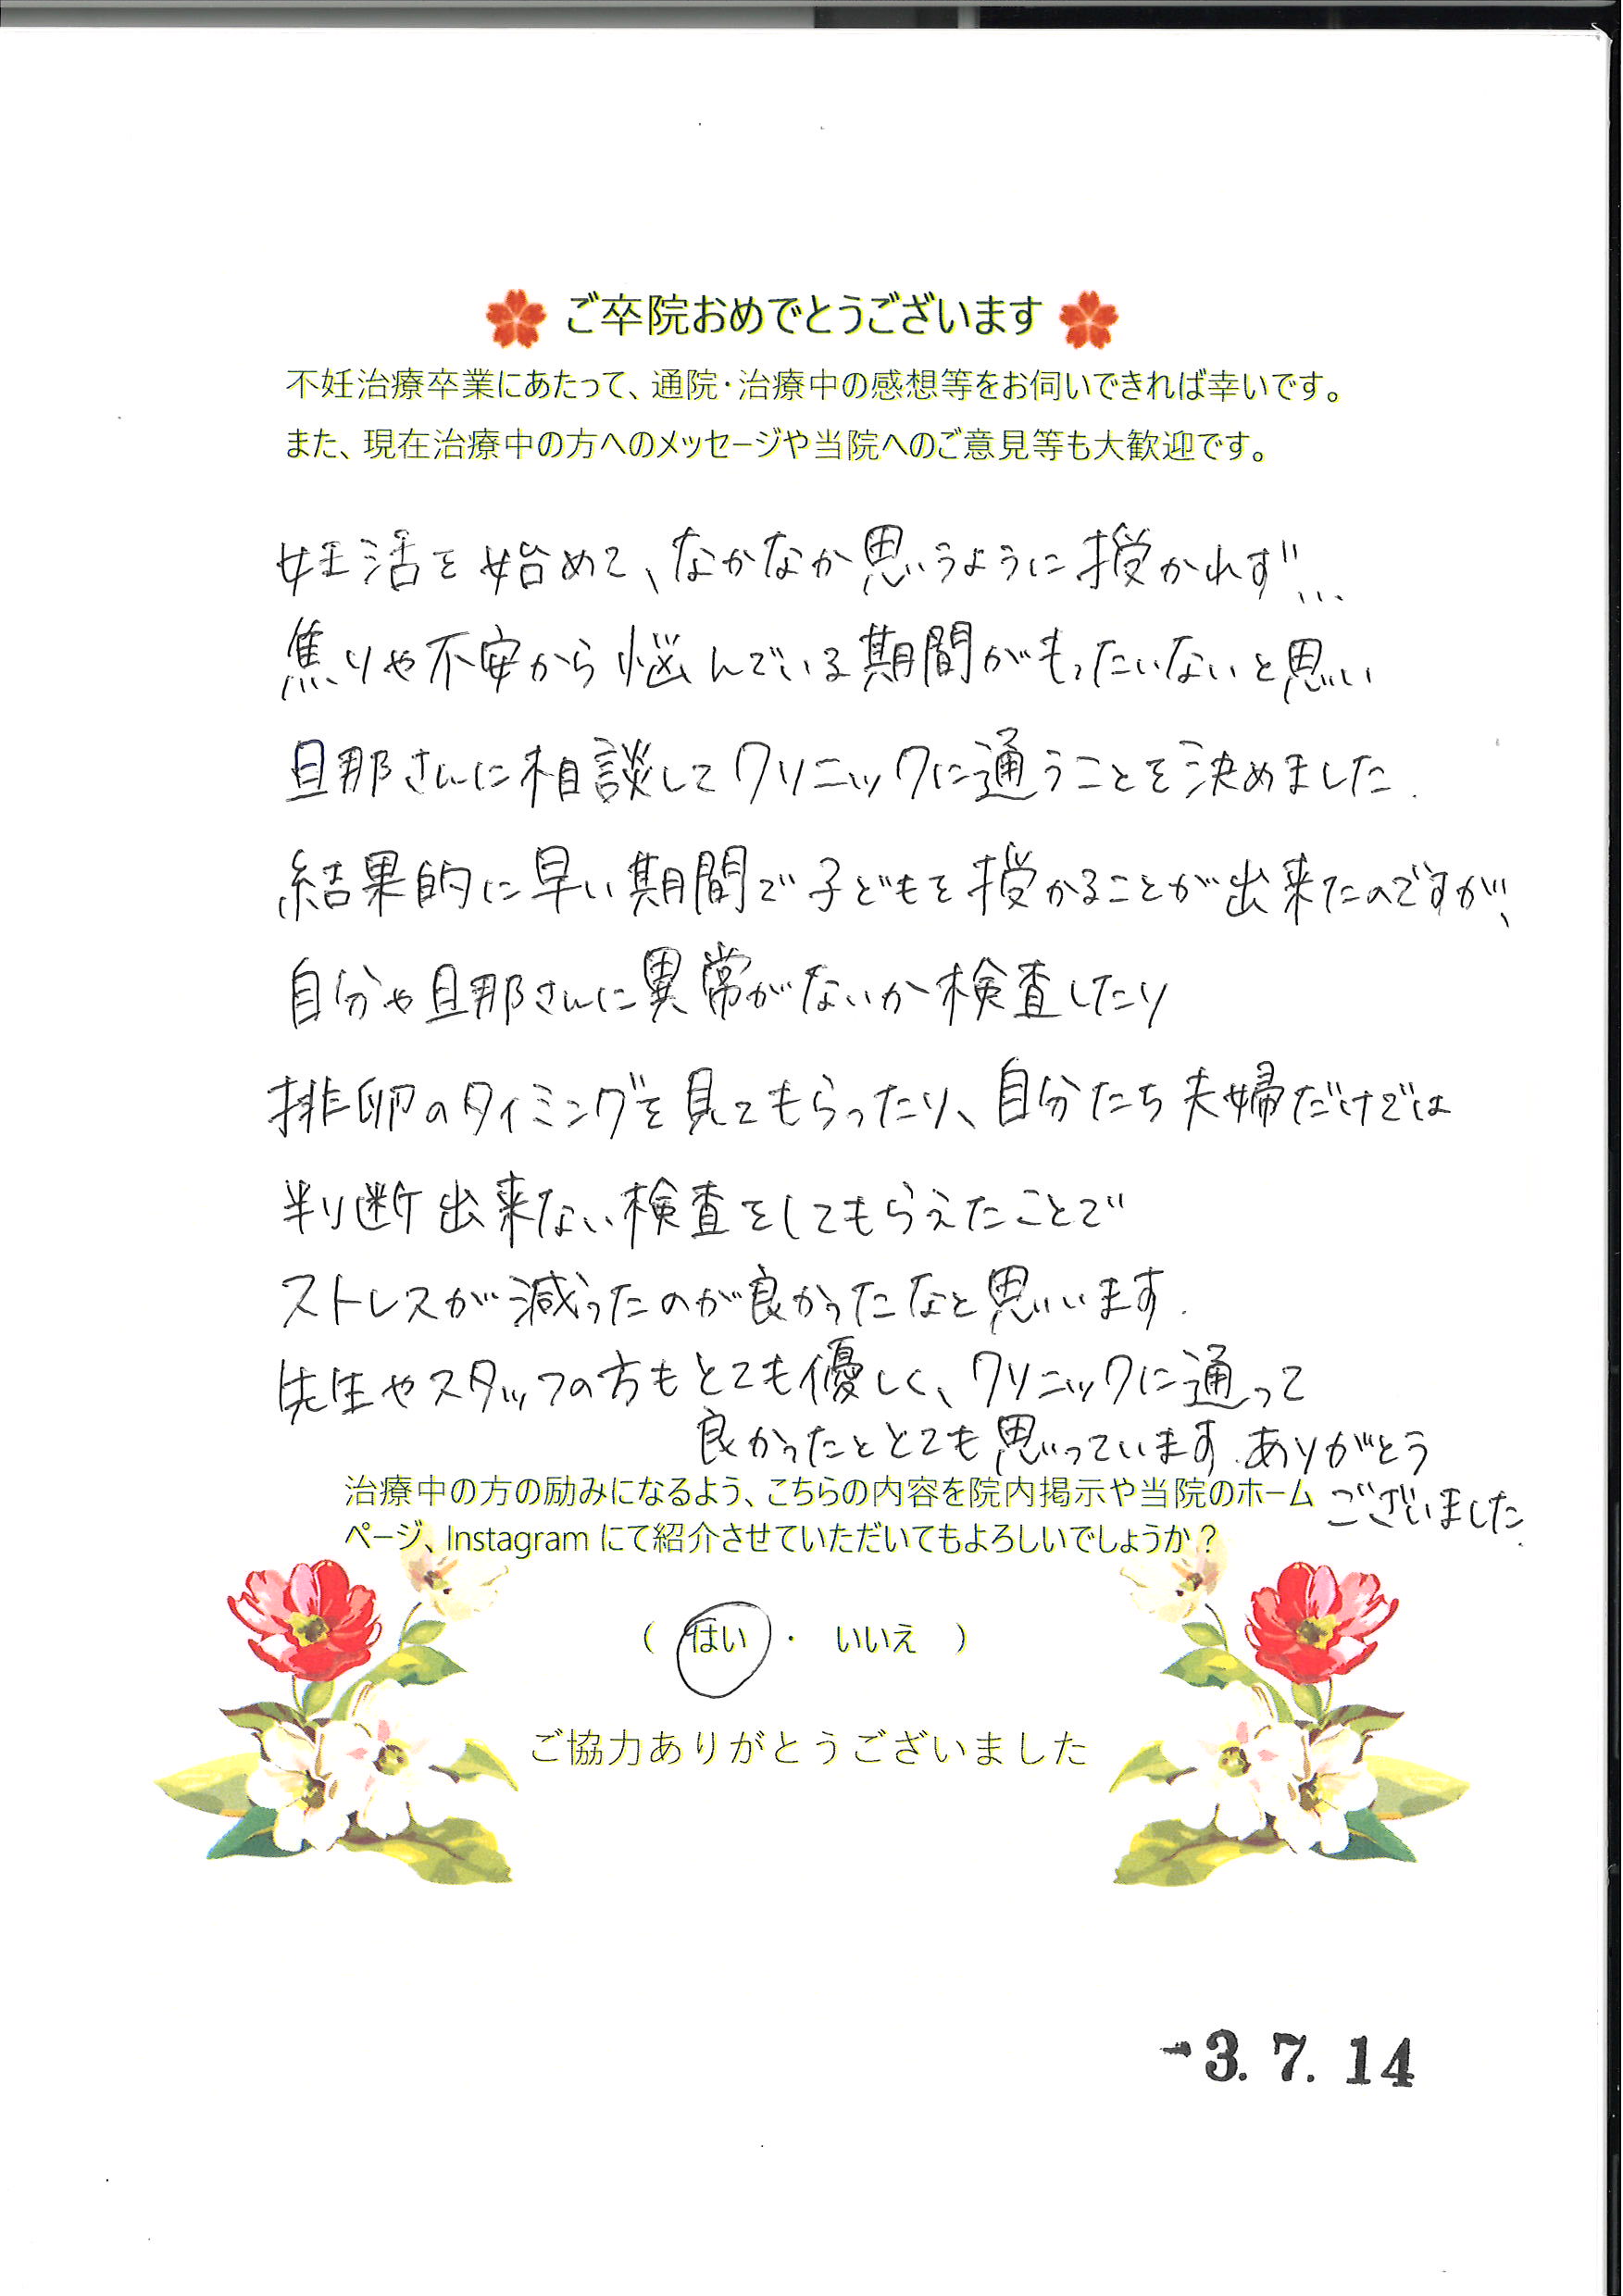 ご卒院おめでとうございます
不妊治療卒業にあたって、通院・治療中の感想等をお伺いできれば幸いです。
また、現在治療中の方へのメッセージや当院へのご意見等も大歓迎です。
妊活を始めて、なかなか思うように授かれず...
焦りや不安から悩んでいる期間がもったいないと思い
旦那さんに相談してクリニックに通うことを決めました.
結果的に早い期間で子どもを授かることが出来たのですが、
自分や旦那さんに異常がないか検査したり
排卵のタイミングを見てもらったり、自分たち夫婦だけでは
判断出来ない検査をしてもらえたことで
ストレスが減ったのが良かったなと思います.
先生やスタッフの方もとても優しく、クリニックに通って
良かったととても思っています.ありがとう
ございました.
治療中の方の励みになるよう、こちらの内容を院内掲示や当院のホーム
ページ、Instagram にて紹介させていただいてもよろしいでしょうか？
( はい ・ いいえ )
ご協力ありがとうございました
-3. 7. 14